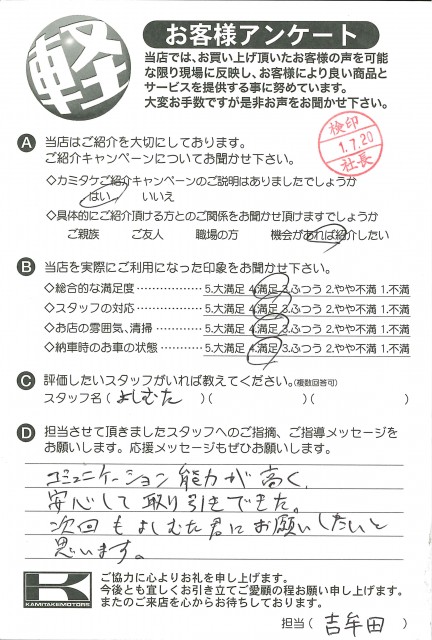 軽
お客様アンケート
当店では、お買い上げ頂いたお客様の声を可能
な限り現場に反映し、お客様により良い商品と
サービスを提供する事に努めています。
大変お手数ですが是非お声をお聞かせ下さい。
検印
1.7.20
社長
A 当店はご紹介を大切にしております。
ご紹介キャンペーンについてお聞かせ下さい。
◇カミタケご紹介キャンペーンのご説明はありましたでしょうか
はい いいえ
◇具体的にご紹介頂ける方とのご関係をお聞かせ頂けますでしょうか
ご親族 ご友人 職場の方 機会があれば紹介したい
B 当店を実際にご利用になった印象をお聞かせ下さい。
◇総合的な満足度 ‥‥‥‥‥‥ 5.大満足 4.満足 3.ふつう 2.やや不満 1.不満
◇スタッフの対応 ‥‥‥‥‥‥ 5.大満足 4.満足 3.ふつう 2.やや不満 1.不満
◇お店の雰囲気、清掃 ‥‥‥‥ 5.大満足 4.満足 3.ふつう 2.やや不満 1.不満
◇納車時のお車の状態 ‥‥‥‥ 5.大満足 4.満足 3.ふつう 2.やや不満 1.不満
C 評価したいスタッフがいれば教えてください。(複数回答可)
スタッフ名 ( よしむた )( )( )
D 担当させて頂きましたスタッフへのご指摘、ご指導メッセージを
お願いします。応援メッセージもぜひお願いします。
コミュニケーション能力が高く、
安心して取り引きできた。
次回もよしむた君にお願いしたいと
思います。
K
KAMITAKEMOTORS
ご協力に心よりお礼を申し上げます。
今後とも宜しくお引き立てご愛顧の程お願い申し上げます。
またのご来店を心からお待ちしております。
担当 ( 吉牟田 )